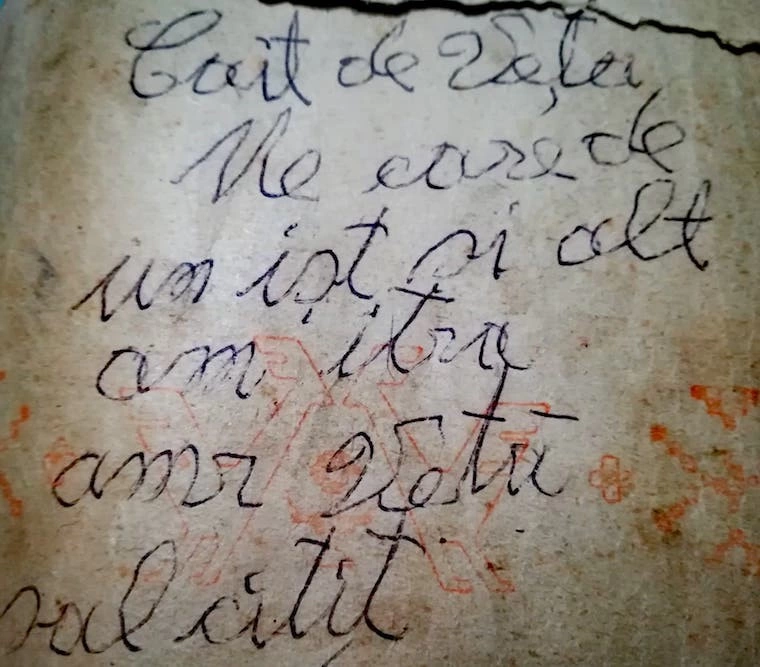 Cait de Vețu
Me care de
un ist și alt
am itra
amr Vetü
sal citit